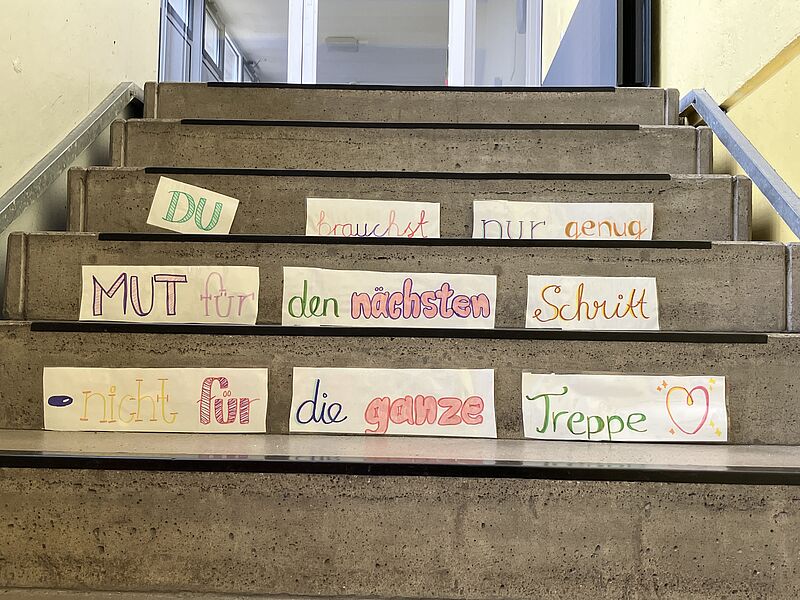 DU brauchst nur genug
MUT für den nächsten Schritt
- nicht für die ganze Treppe